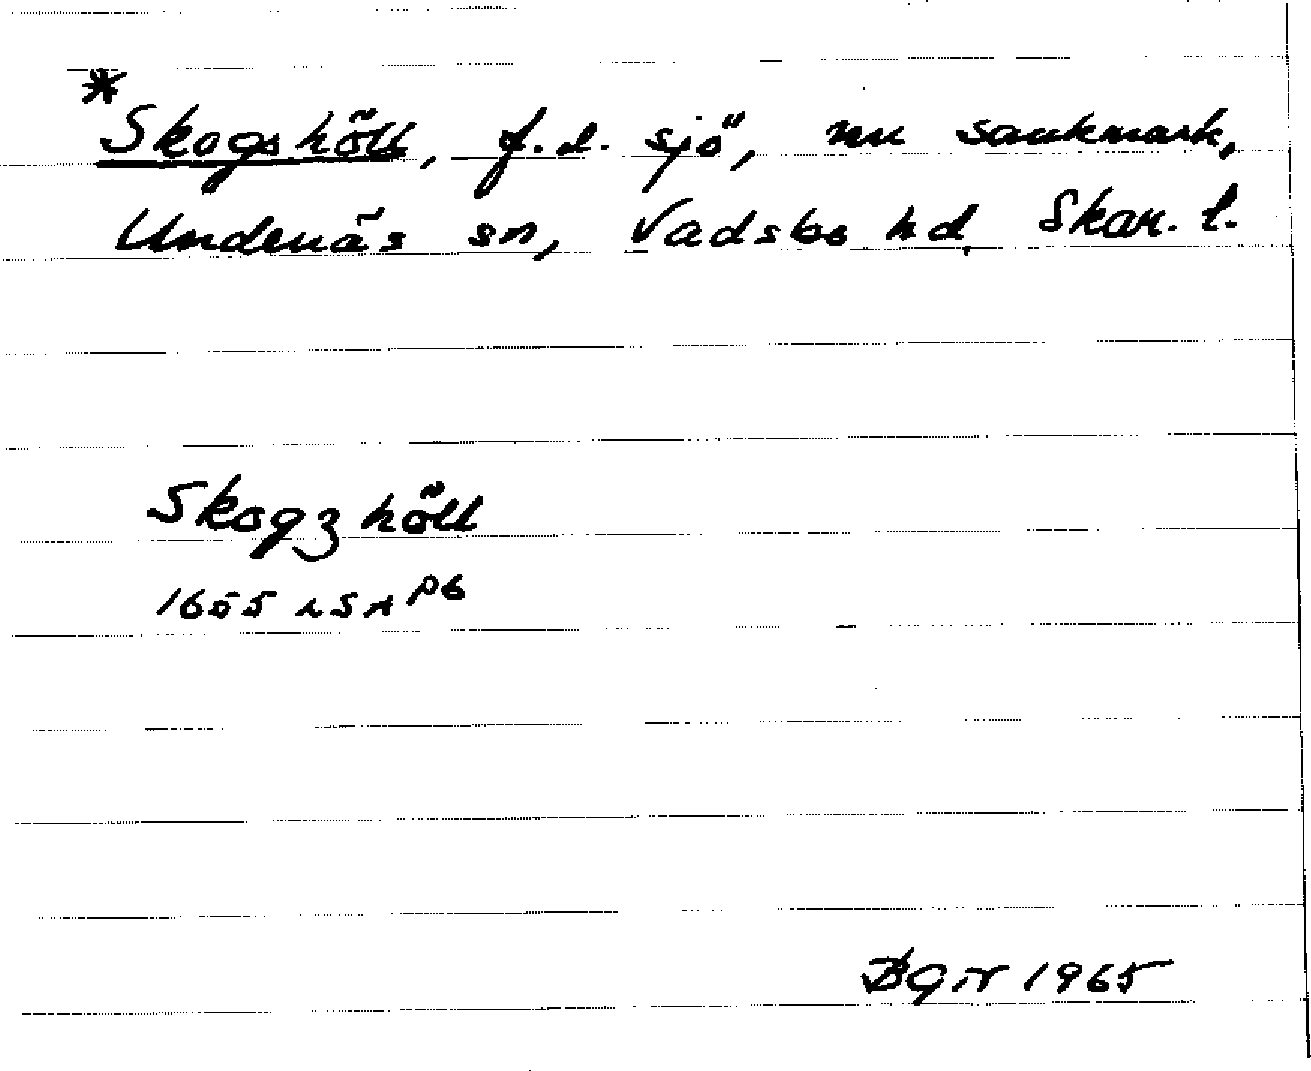 *
Skogshöll, f.d. sjö, nu sankmark,
Undenäs sn, Vadsbo hd, Skar. l.
Skogzhöll
1655 LSA P6
1965